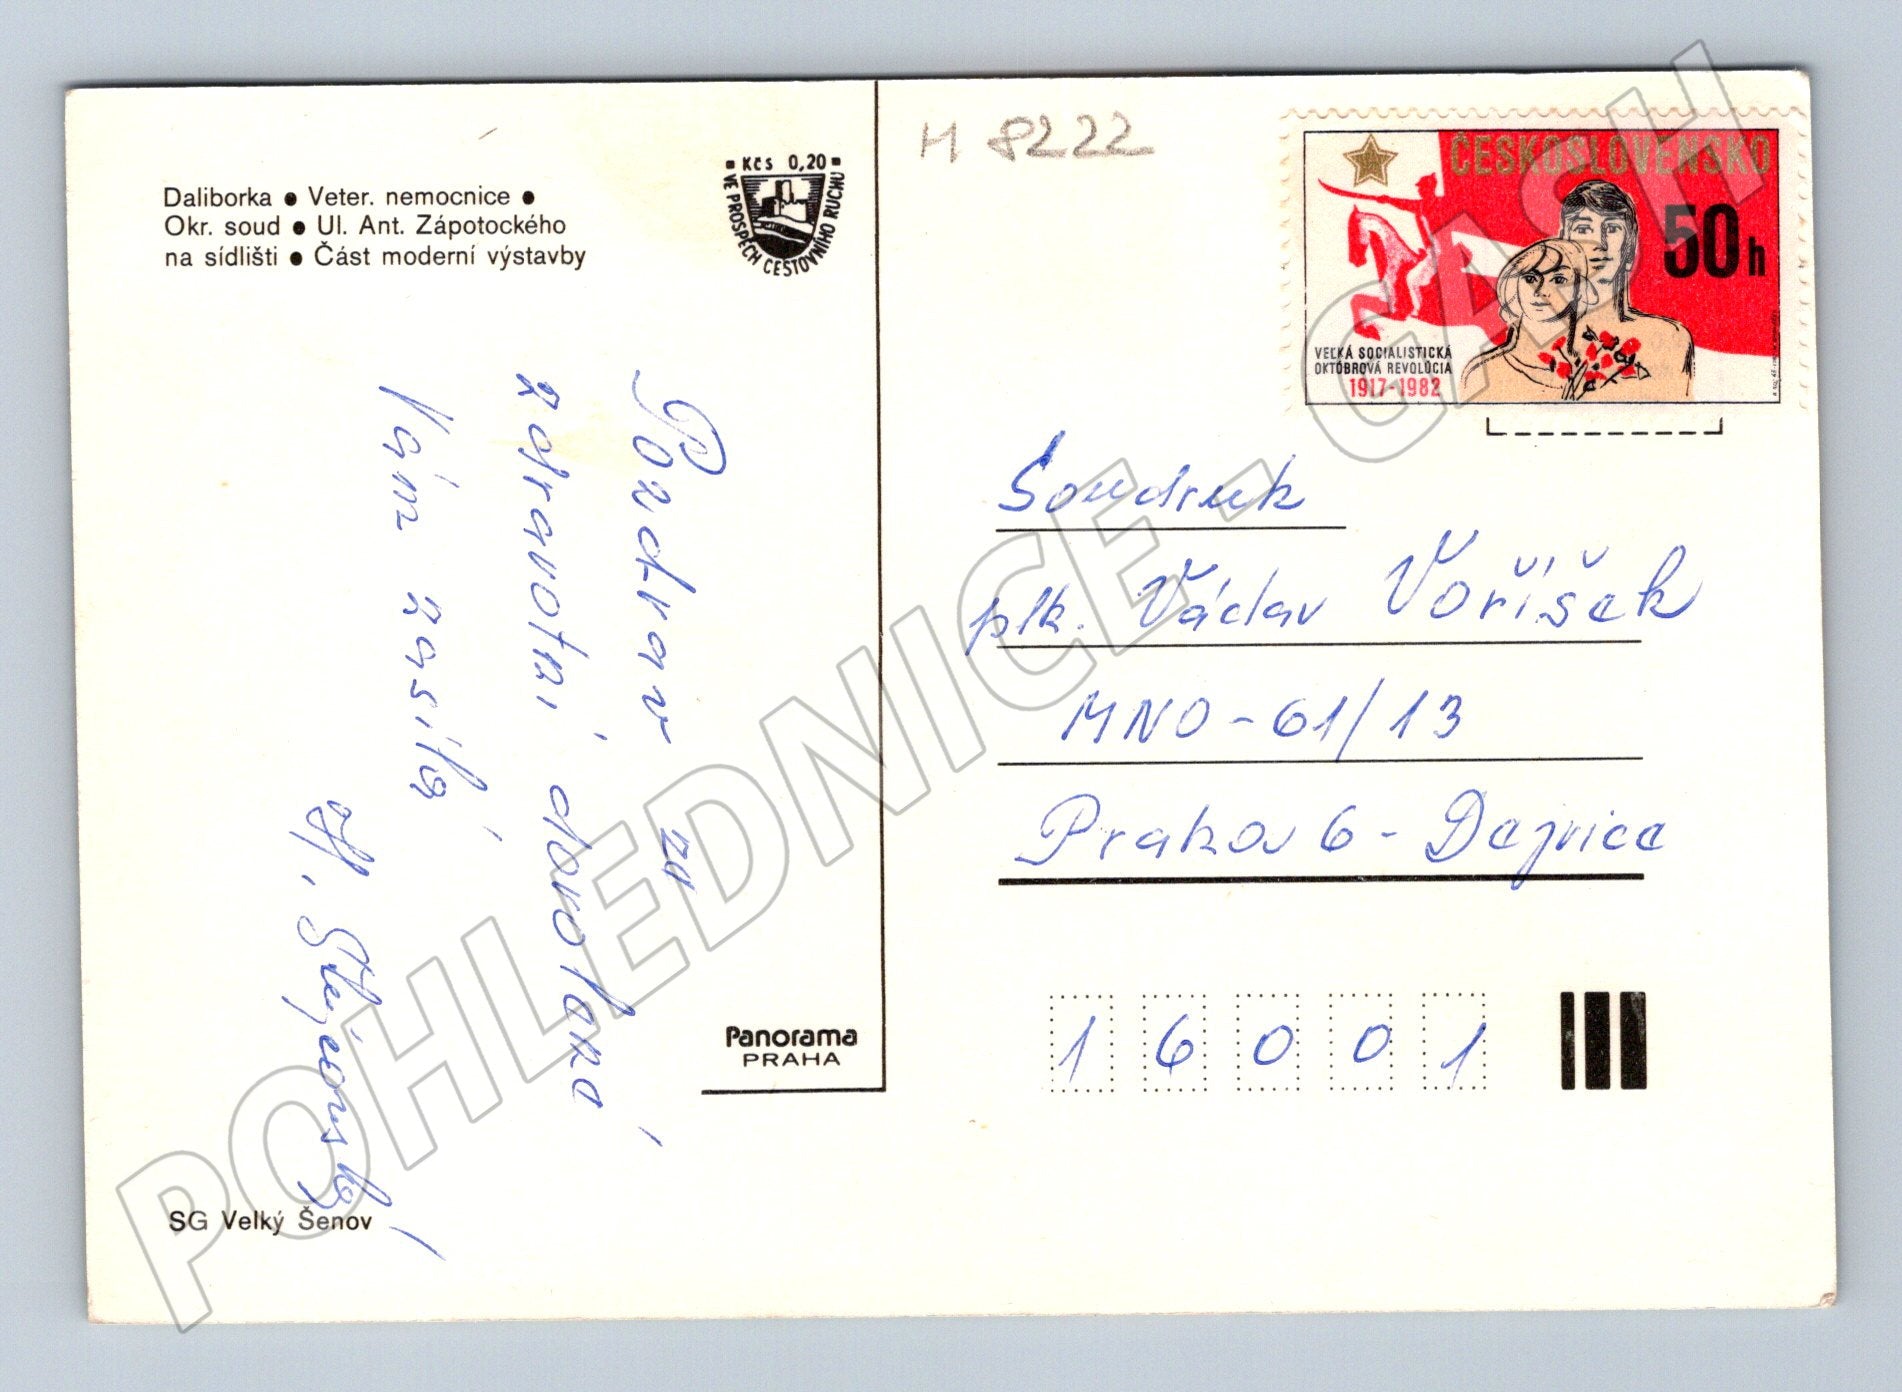 Daliborka ● Veter. nemocnice ●
Okr. soud ● Ul. Ant. Zápotockého
na sídlišti ● Část moderní výstavby
Kčs 0,20
VE PROSPĚCH CESTOVNÍHO RUCHU
Pozdrav ze
zdravotní dovolené
Vám zasílá
SG Velký Šenov
Panorama
PRAHA
H 8222
ČESKOSLOVENSKO
50 h
VEĽKÁ SOCIALISTICKÁ
OKTÓBROVÁ REVOLÚCIA
1917-1982
Soudruh
plk. Václav Voříšek
MNO-61/13
Praha 6 - Dejvice
16001
POHLEDNICE - GASH